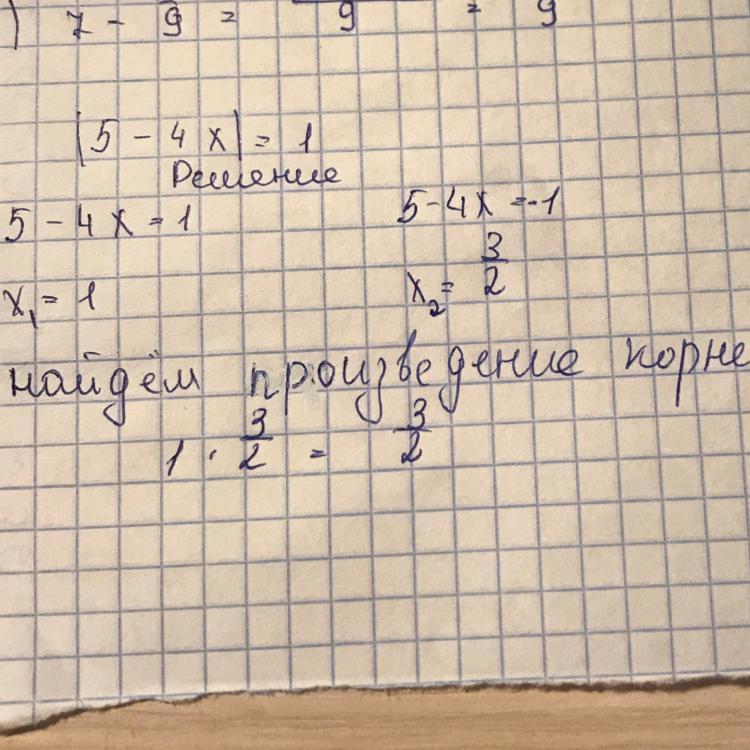 ) 7 - 9 = 9 = 9
|5 - 4x| = 1
Решение
5 - 4x = 1 5-4x = -1
x₁ = 1 x₂ = 3/2
найдём произведение корне
1 · 3/2 = 3/2